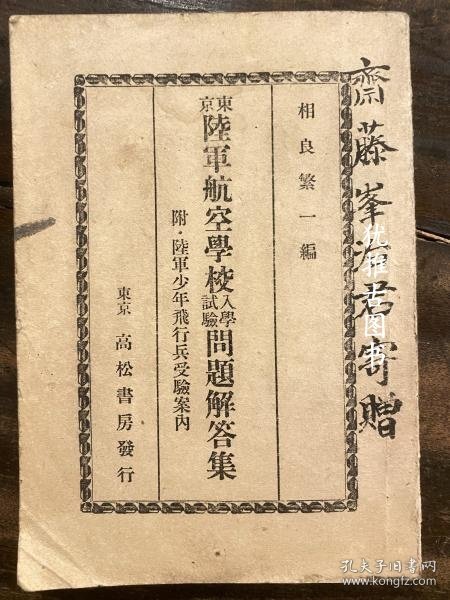 齋藤峯治君寄贈
相良繁一編
東京陸軍航空學校入學試驗問題解答集
附・陸軍少年飛行兵受驗案内
東京 高松書房發行
犹雅古图书
孔夫子旧书网
www.kongfz.com